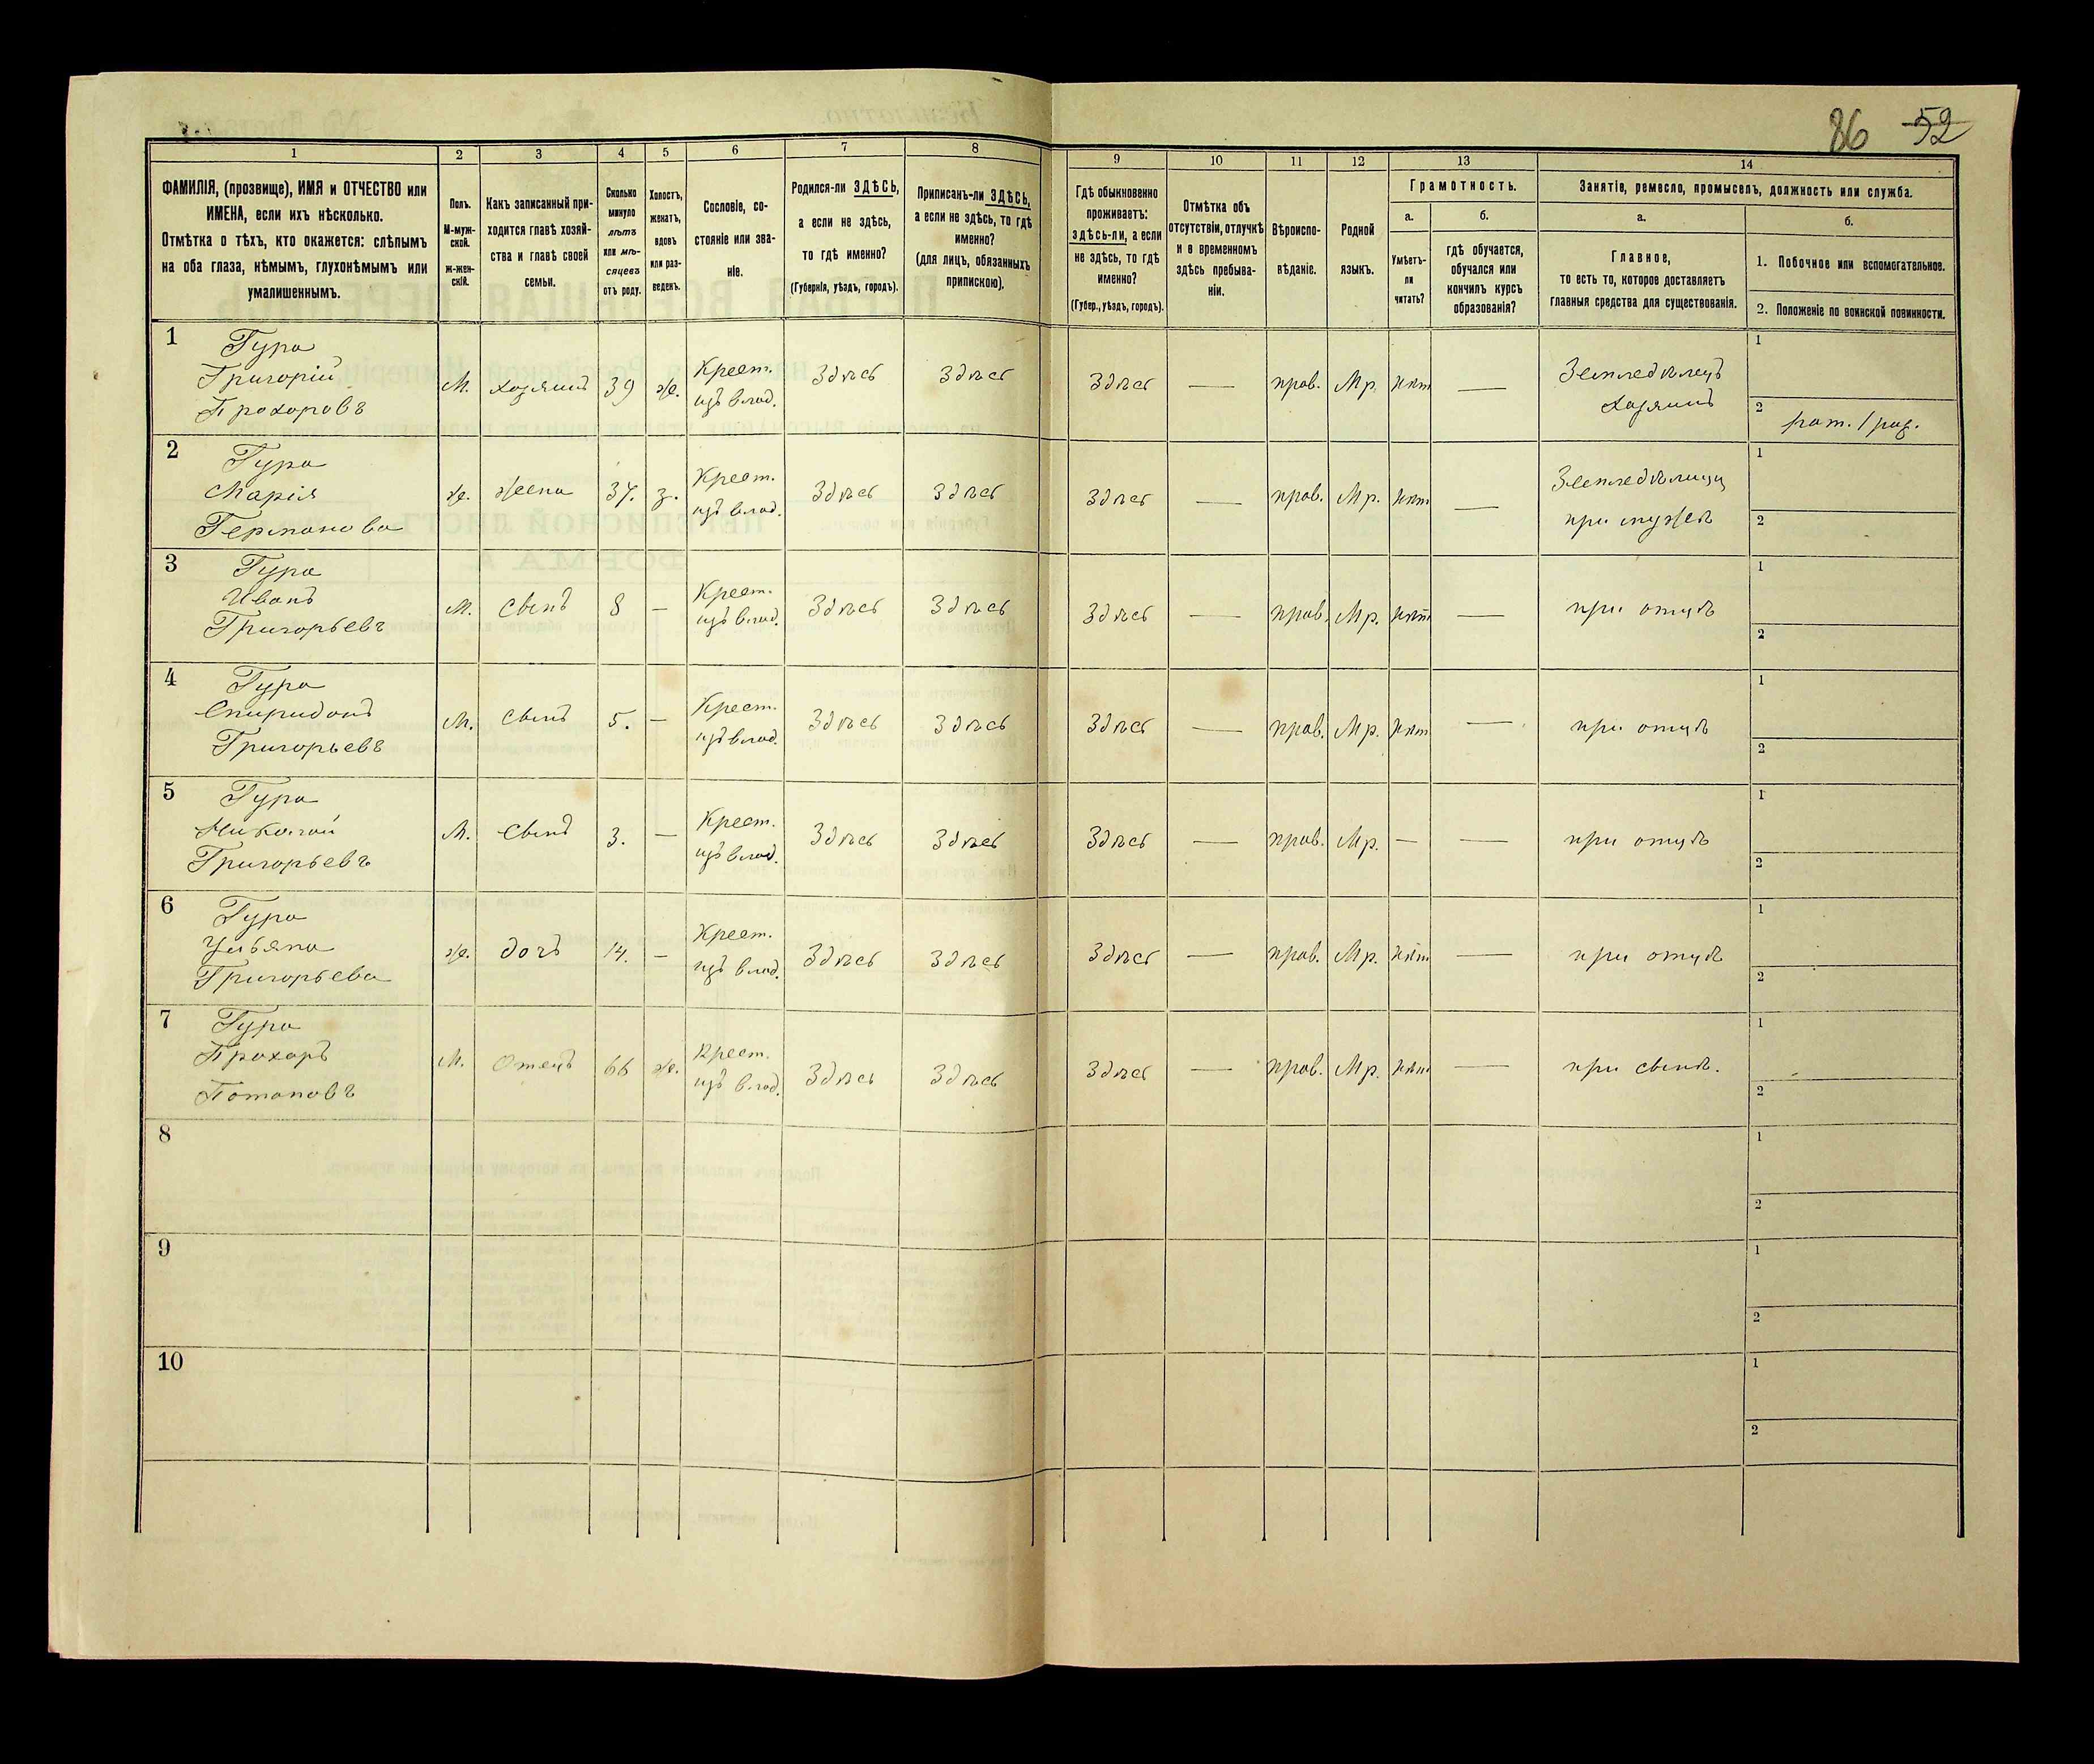 86 52
1 2 3 4 5 6 7 8 9 10 11 12 13 14
ФАМИЛІЯ, (прозвище), ИМЯ и ОТЧЕСТВО или
ИМЕНА, если ихъ нѣсколько.
Отмѣтка о тѣхъ, кто окажется: слѣпымъ
на оба глаза, нѣмымъ, глухонѣмымъ или
умалишеннымъ.
Полъ.
М-муж-
ской.
ж-жен-
скій.
Какъ записанный при-
ходится главѣ хозяй-
ства и главѣ своей
семьи.
Сколько
минуло
лѣтъ
или мѣ-
сяцевъ
отъ роду.
Холостъ,
женатъ,
вдовъ
или раз-
веденъ.
Сословіе, со-
стояніе или зва-
ніе.
Родился-ли ЗДѢСЬ,
а если не здѣсь,
то гдѣ именно?
(Губернія, уѣздъ, городъ).
Приписанъ-ли ЗДѢСЬ,
а если не здѣсь, то гдѣ
именно?
(для лицъ, обязанныхъ
припискою).
Гдѣ обыкновенно
проживаетъ:
здѣсь-ли, а если
не здѣсь, то гдѣ
именно?
(Губер., уѣздъ, городъ).
Отмѣтка объ
отсутствіи, отлучкѣ
и о временномъ
здѣсь пребыва-
ніи.
Вѣроиспо-
вѣданіе.
Родной
языкъ.
Грамотность.
а.
Умѣетъ-
ли
читать?
б.
гдѣ обучается,
обучался или
кончилъ курсъ
образованія?
Занятіе, ремесло, промыселъ, должность или служба.
а.
Главное,
то есть то, которое доставляетъ
главныя средства для существованія.
б.
1. Побочное или вспомогательное.
2. Положеніе по воинской повинности.
1 Гура
Григорій
Прохоровъ
М. хозяинъ 39 ж. Крест.
изъ влад.
Здѣсь Здѣсь Здѣсь — прав. Мр. нѣт —
Земледѣлецъ
хозяинъ
1
2 рат. 1 раз.
2 Гура
Марія
Германова
ж. жена 37. з. Крест.
изъ влад.
Здѣсь Здѣсь Здѣсь — прав. Мр. нѣт —
при мужѣ
1
2
3 Гура
Иванъ
Григорьевъ
М. сынъ 8 — Крест.
изъ влад.
Здѣсь Здѣсь Здѣсь — прав. Мр. нѣт —
при отцѣ
1
2
4 Гура
Спиридонъ
Григорьевъ
М. сынъ 5. — Крест.
изъ влад.
Здѣсь Здѣсь Здѣсь — прав. Мр. нѣт —
при отцѣ
1
2
5 Гура
Николай
Григорьевъ
М. сынъ 3. — Крест.
изъ влад.
Здѣсь Здѣсь Здѣсь — прав. Мр. — —
при отцѣ
1
2
6 Гура
Ульяна
Григорьева
ж. дочъ 14. — Крест.
изъ влад.
Здѣсь Здѣсь Здѣсь — прав. Мр. нѣт —
при отцѣ
1
2
7 Гура
Прохоръ
Потаповъ
М. Отецъ 66 ж. Крест.
изъ влад.
Здѣсь Здѣсь Здѣсь — прав. Мр. нѣт —
при сынѣ.
1
2
8
1
2
9
1
2
10
1
2